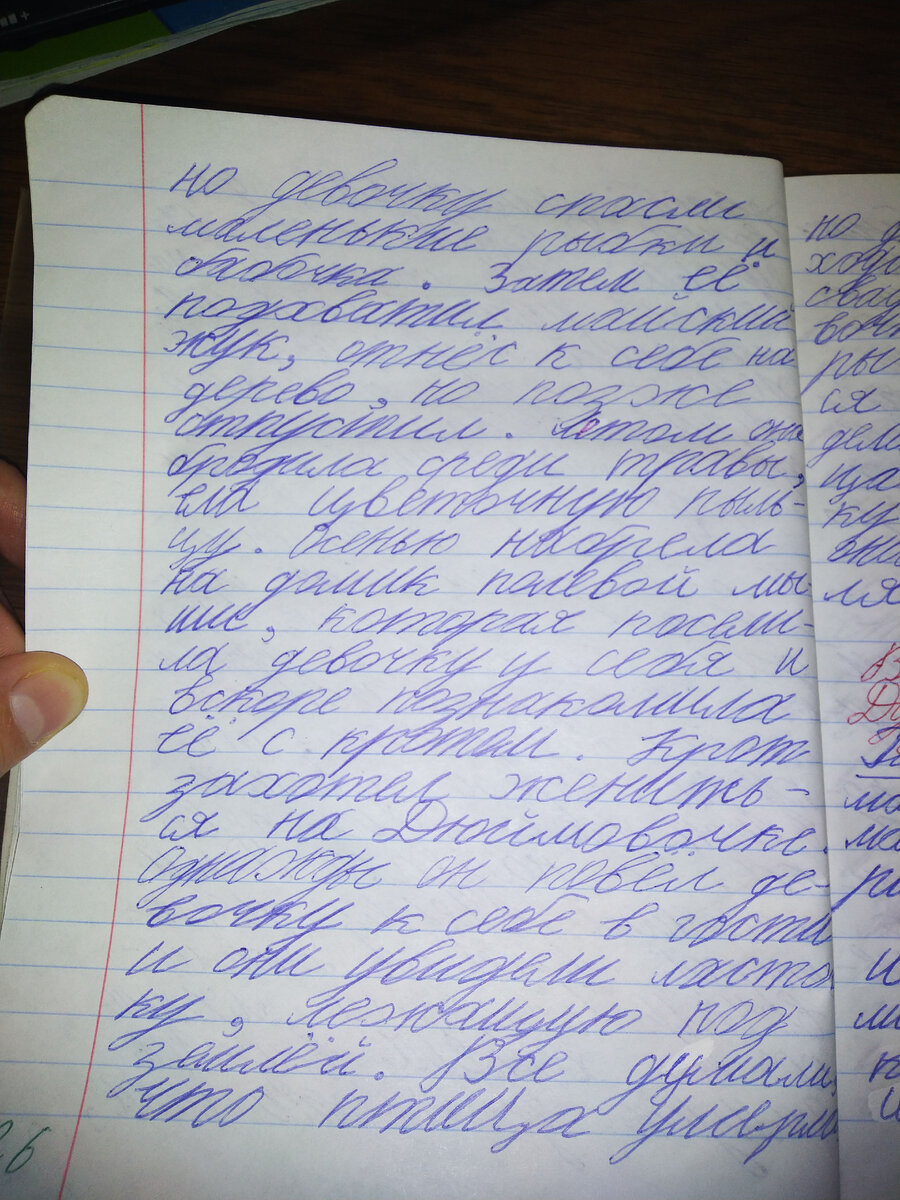 но девочку спасли
маленькие рыбки и
бабочка. Затем её
подхватил майский
жук, отнёс к себе на
дерево, но позже
отпустил. Летом она
бродила среди травы,
ела цветочную пыль-
цу. Осенью набрела
на домик полевой мы
ши, которая посели-
ла девочку у себя и
вскоре познакомила
её с кротом. Крот
захотел женить-
ся на Дюймовочке.
Однажды он повёл де-
вочку к себе в гости
и они увидели ласточ
ку, лежащую под
землёй. Все думали,
что птица умерла
26
но д
сва
вочк
ры
ся
дела
ца
ку
ля
В
Дю
ма
ри
и
ми
к
и